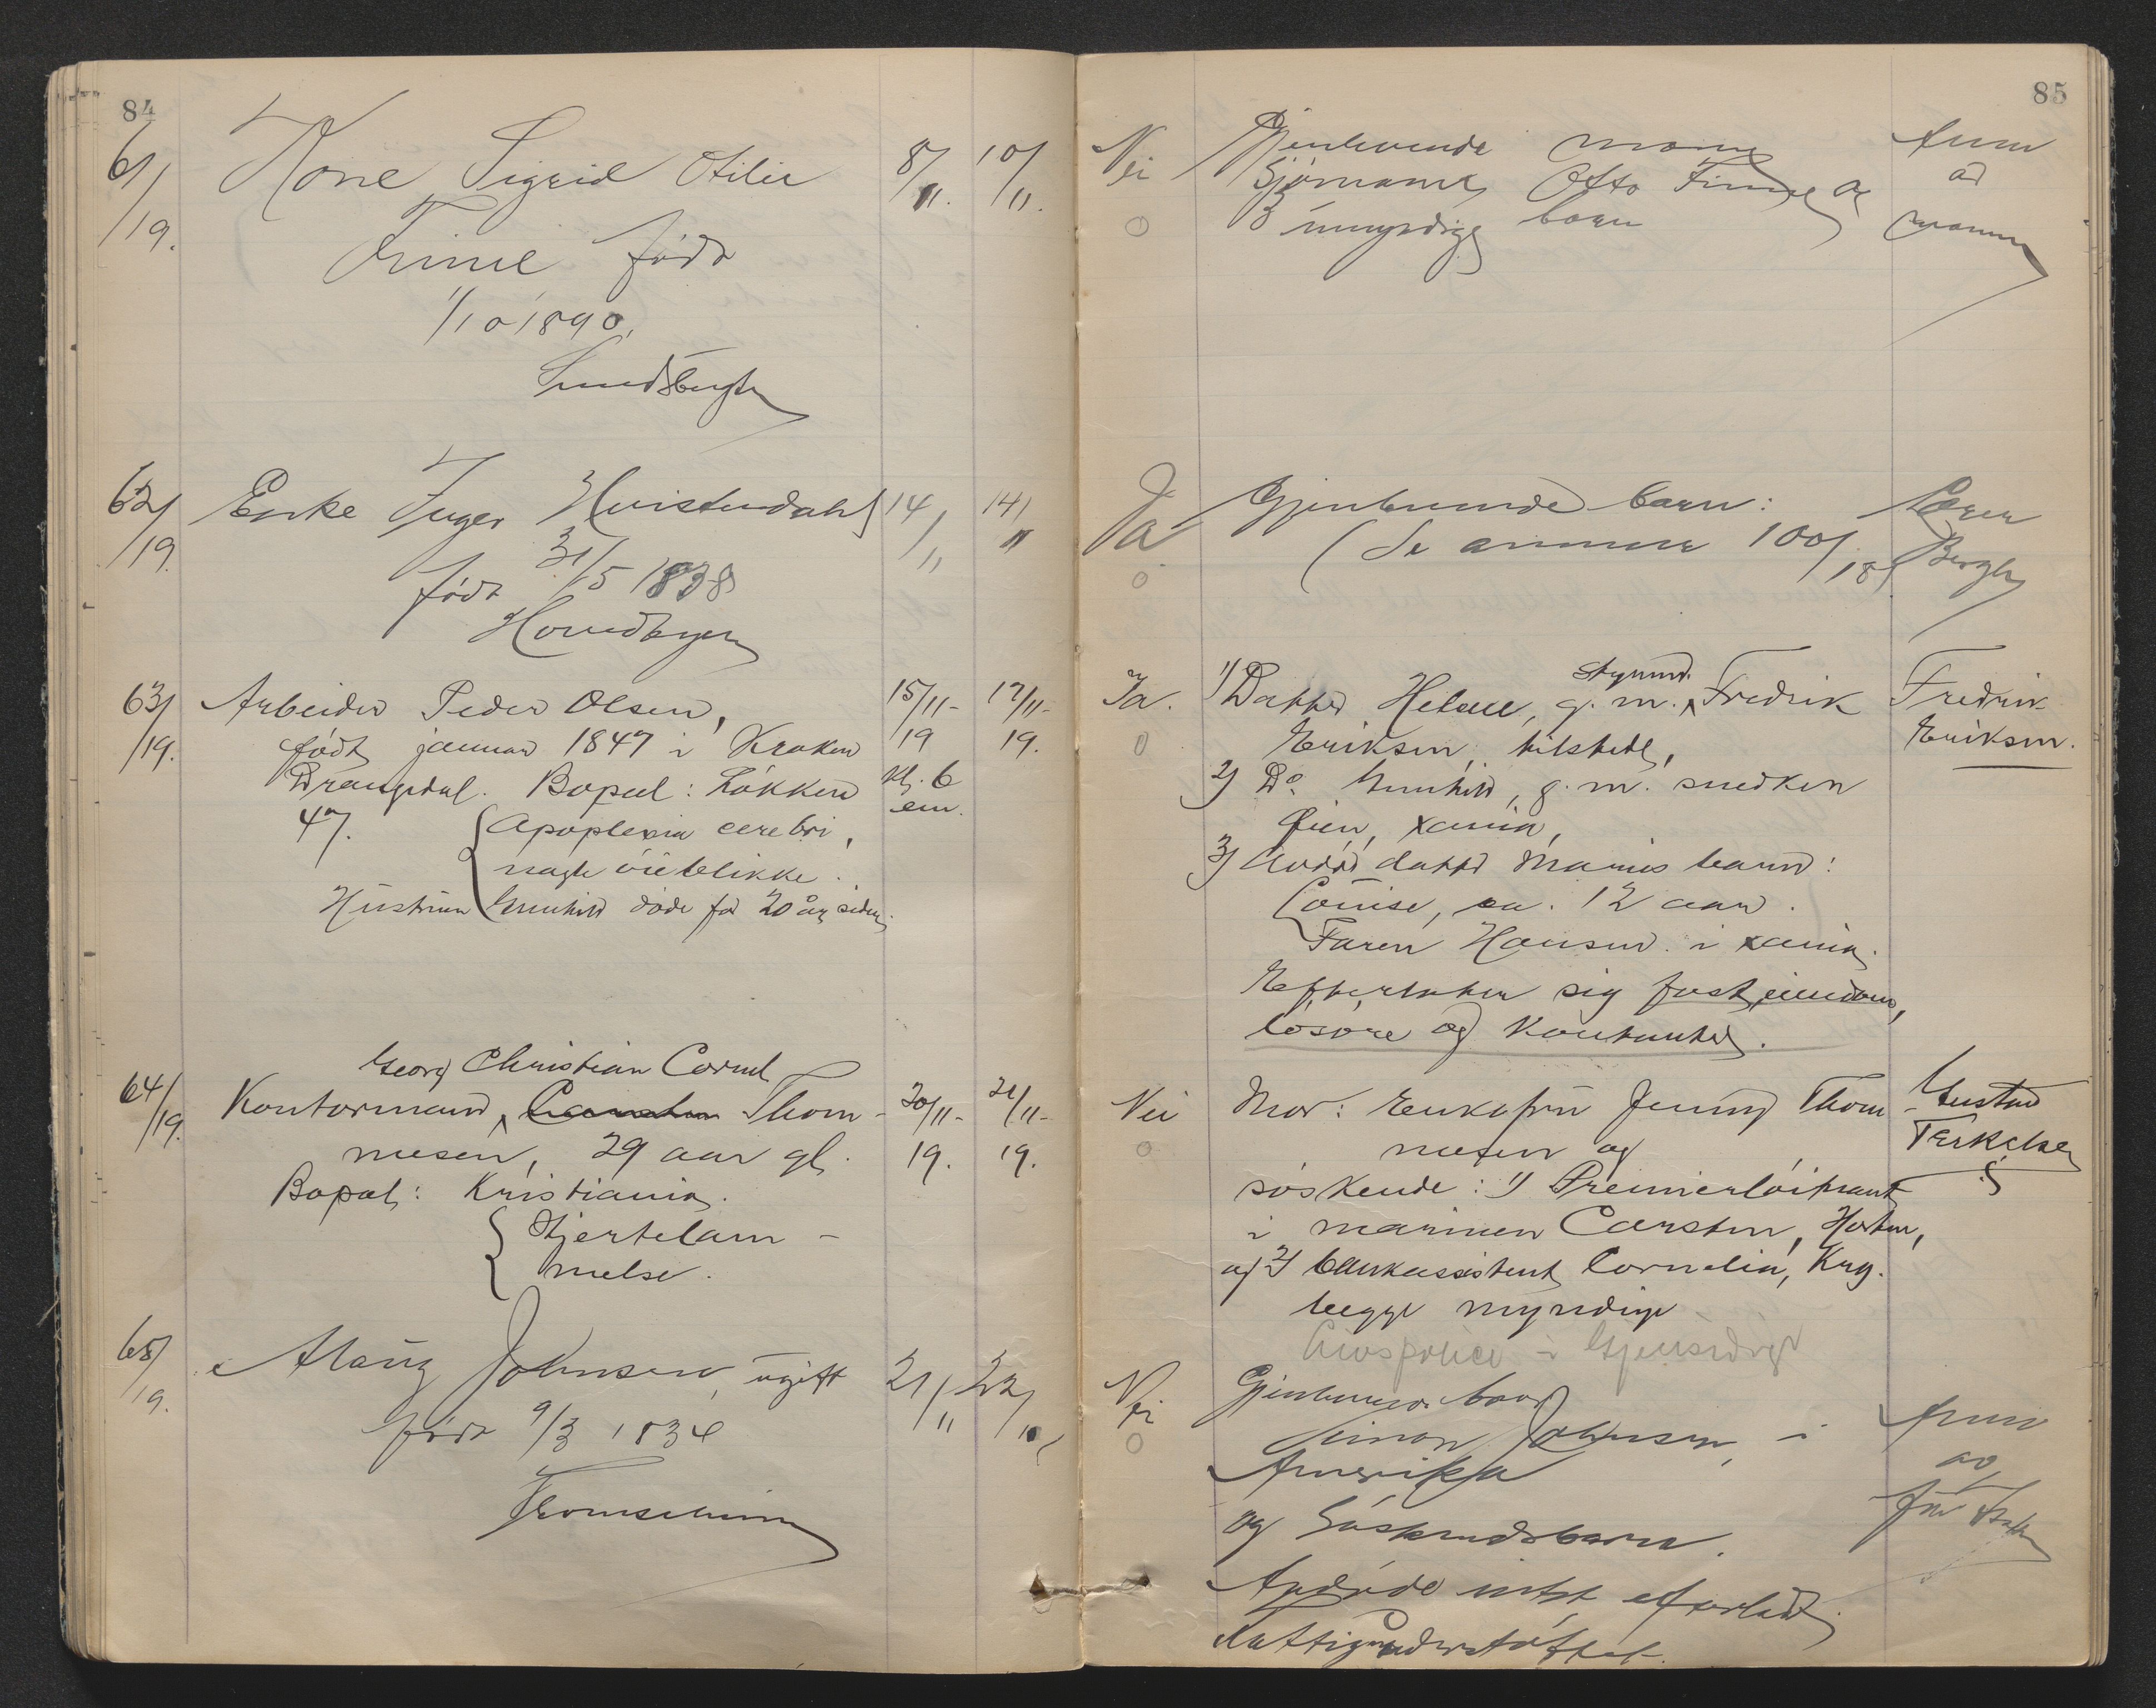 84
61/19.
Kone Sigrid Otilie
Finne født
1/10 1890,
Sundsbugt
8/11.
10/11.
62/19
Enke Inger Hvistendahl
født 31/5 1838
Hovedbyen
14/11
14/11
63/19.
Arbeider Peder Olsen,
født januar 1847 i Kroken
Drangedal. Bopæl: Løkken
47.
Apoplexia cerebri,
nogle öieblikke.
Hustruen Gunhild döde for 20 år siden.
15/11-19
Kl. 6 em.
17/11-19.
64/19.
Georg Christian Cornel.
Kontormand, Thom-
mesen, 29 aar gl.
Bopæl: Kristiania.
Hjertelam-
melse.
20/11-19.
21/11-19.
65/19.
Johnsen, ugift
født 9/3 1834
21/11
22/11
85
Nei
0
Gjenlevende mand
Sjømand Otto Finne og
3 umyndige barn
Anm
av
manden
Ja
0
Gjenlevende barn:
(Se anmmeld 100/18)
Lærer
Bergh
Ja.
0
1) Datter Helene, g. m. styrmd. Fredrik
Eriksen, tilstede,
2) Do Gunhild, g. m. snedker
Lien, Xania,
3) Avdød datter Maries barn:
Louise, ca. 12 aar.
Faren Hansen i Xania.
Efterlater sig fast eiendom,
løsøre og kontanter.
Fredrik
Eriksen.
Nei
0
Mor: Enkefru Jenny Thom-
mesen og
søskende: 1) Premierløitnant
i marinen Carsten, Horten,
og 2) bankassistent Cornelia, Krg.
begge myndige
Livspolice i Gjensidige
Gustav
Terkelsen
Nei
0
Gjenlevende bror
Simon Johnsen, i
Amerika
og Søskendebarn.
Avdøde intet efterlatt
Fattigunderstøttet.
Anm
av